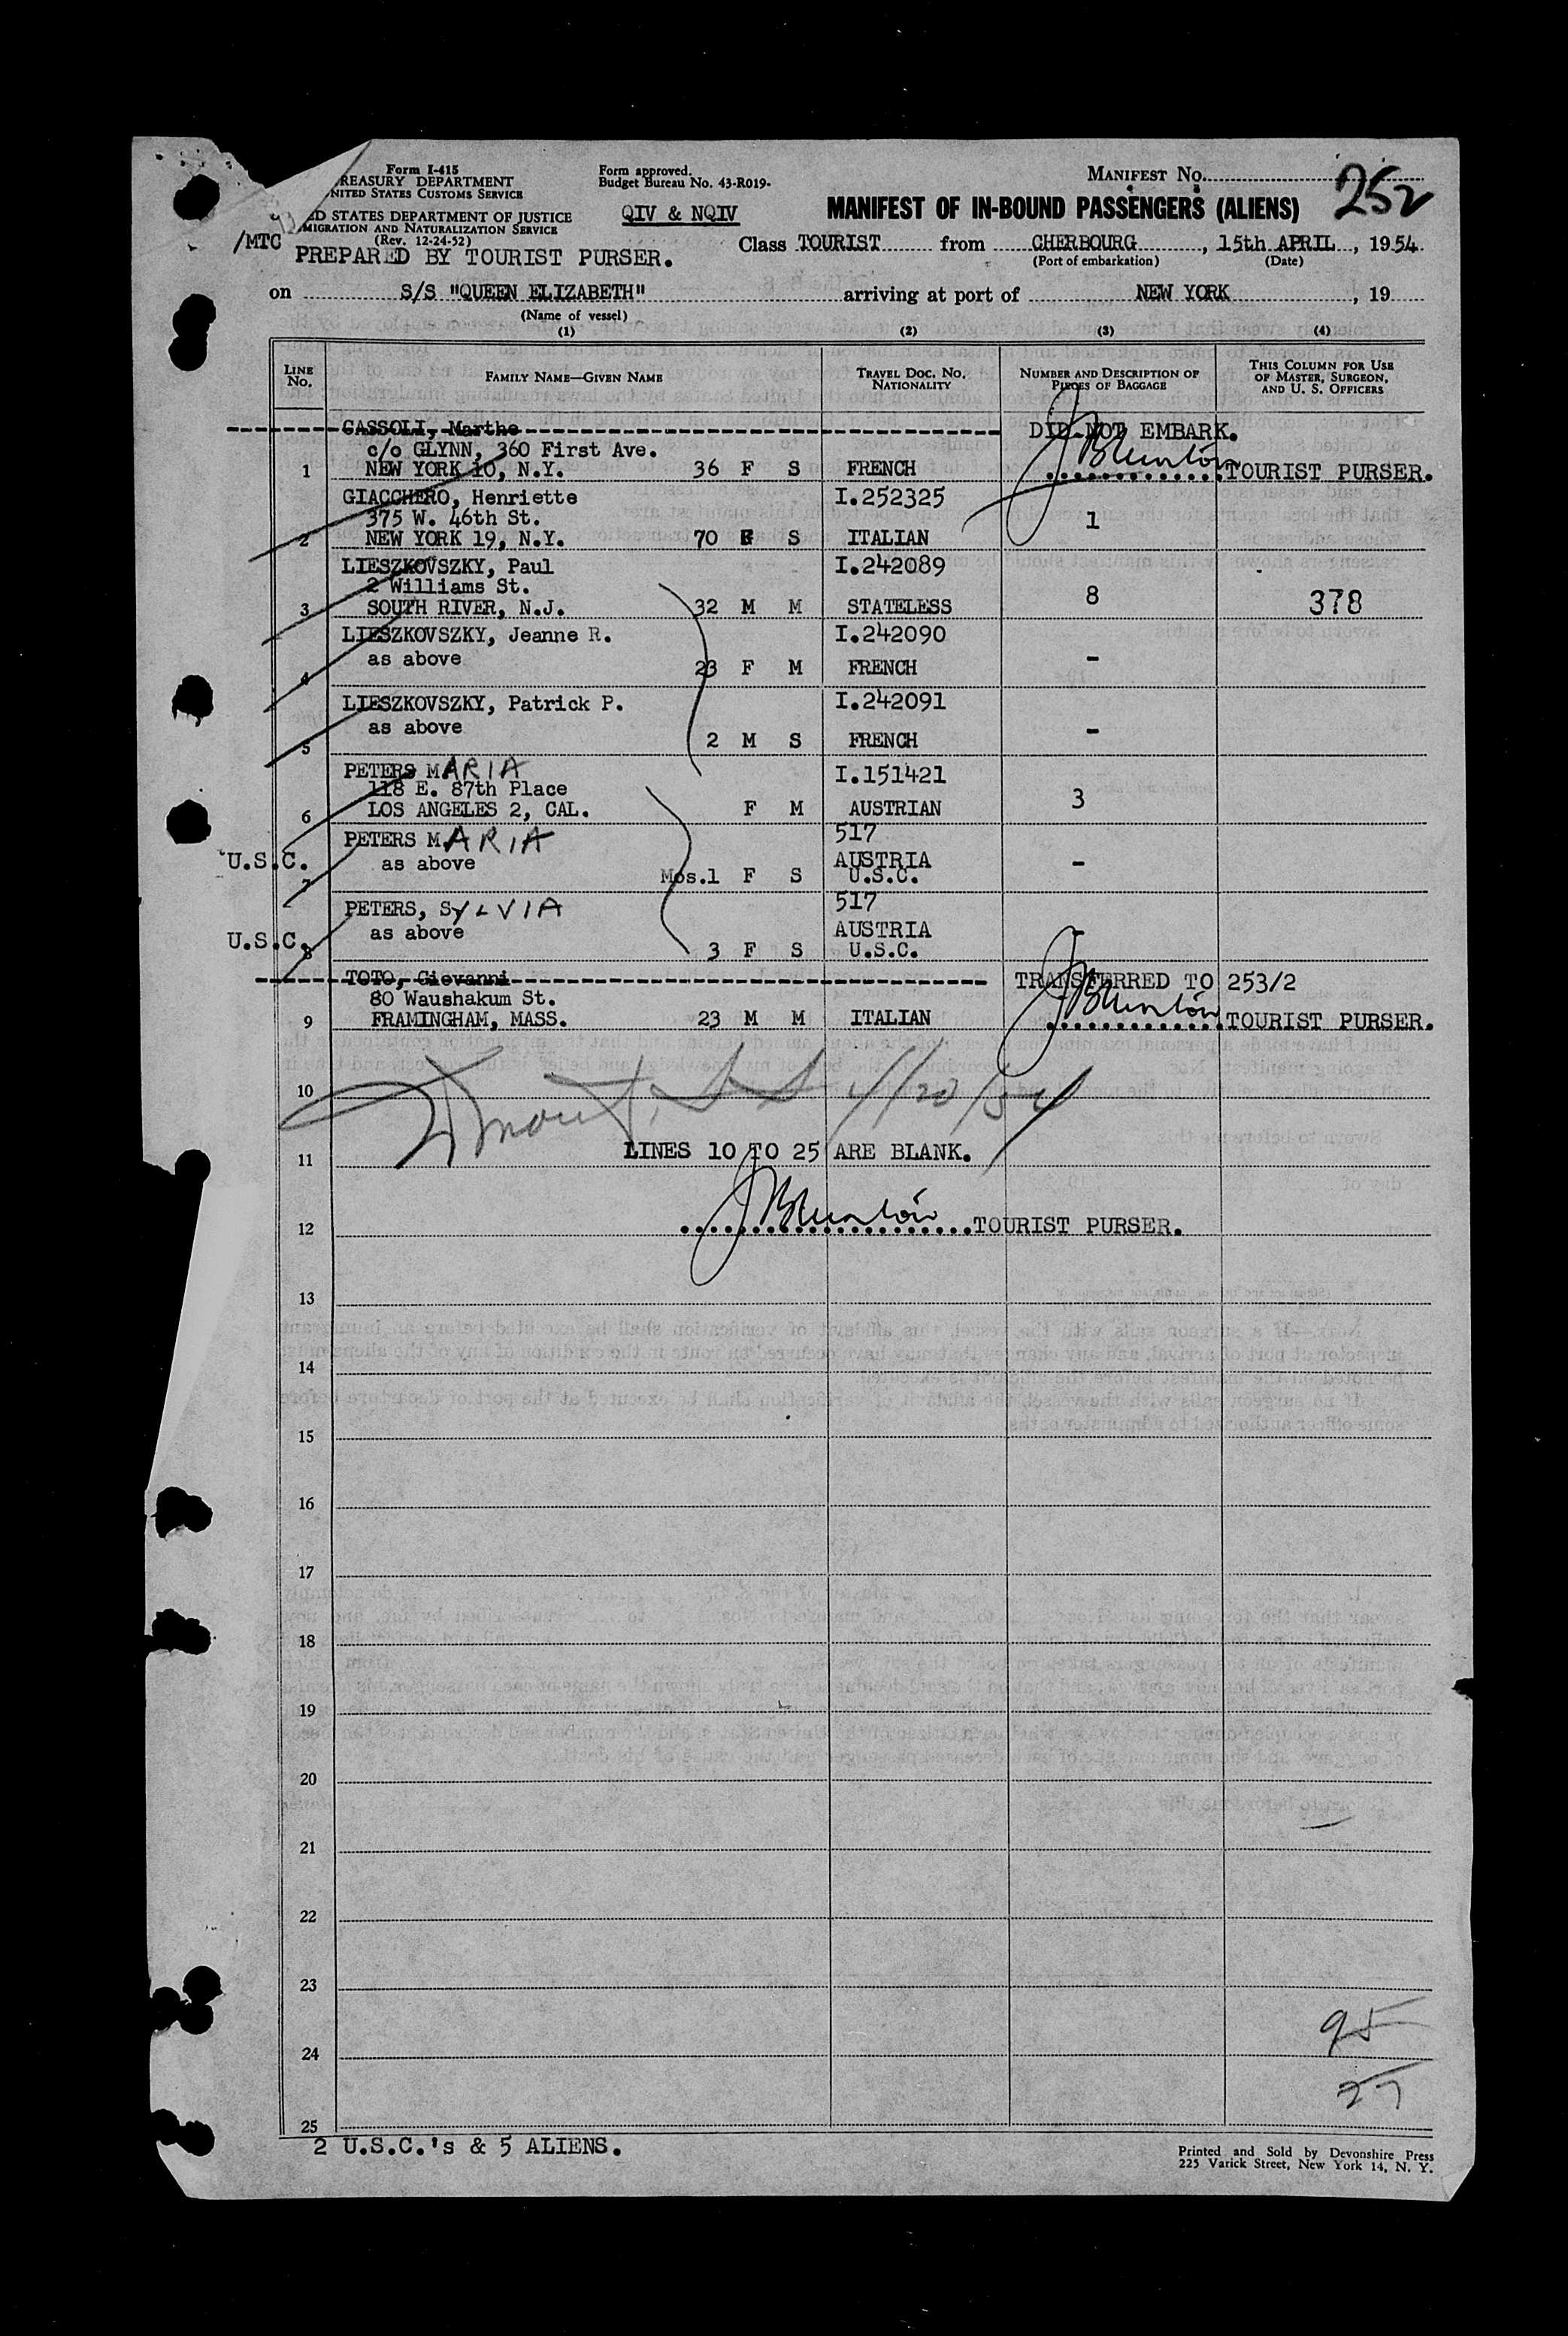 Form I-415
TREASURY DEPARTMENT
UNITED STATES CUSTOMS SERVICE
UNITED STATES DEPARTMENT OF JUSTICE
IMMIGRATION AND NATURALIZATION SERVICE
(Rev. 12-24-52)
/MTC
PREPARED BY TOURIST PURSER.
Form approved.
Budget Bureau No. 43-R019-
QIV & NQIV
MANIFEST NO. 252
MANIFEST OF IN-BOUND PASSENGERS (ALIENS)
Class TOURIST from CHERBOURG, 15th APRIL, 1954
(Port of embarkation) (Date)
on S/S "QUEEN ELIZABETH" arriving at port of NEW YORK, 19
(Name of vessel)
(1) (2) (3) (4)
LINE NO. FAMILY NAME—GIVEN NAME TRAVEL DOC. NO. NATIONALITY NUMBER AND DESCRIPTION OF PIECES OF BAGGAGE THIS COLUMN FOR USE OF MASTER, SURGEON, AND U. S. OFFICERS
GASSOLI, Marthe DID NOT EMBARK.
c/o GLYNN, 360 First Ave.
1 NEW YORK 10, N.Y. 36 F S FRENCH TOURIST PURSER.
GIACCHERO, Henriette I.252325
375 W. 46th St. 1
2 NEW YORK 19, N.Y. 70 F S ITALIAN
LIESZKOVSZKY, Paul I.242089
2 Williams St. 8
3 SOUTH RIVER, N.J. 32 M M STATELESS 378
LIESZKOVSZKY, Jeanne R. I.242090
as above -
4 23 F M FRENCH
LIESZKOVSZKY, Patrick P. I.242091
as above -
5 2 M S FRENCH
PETERS MARIA I.151421
118 E. 87th Place 3
6 LOS ANGELES 2, CAL. F M AUSTRIAN
PETERS MARIA 517
U.S.C. as above AUSTRIA -
7 Mos.1 F S U.S.C.
PETERS, SYLVIA 517
U.S.C. as above AUSTRIA -
8 3 F S U.S.C.
TOTO, Giovanni TRANSFERRED TO 253/2
80 Waushakum St.
9 FRAMINGHAM, MASS. 23 M M ITALIAN TOURIST PURSER.
10 4/20/54
11 LINES 10 TO 25 ARE BLANK.
12 TOURIST PURSER.
13
14
15
16
17
18
19
20
21
22
23
95
24
27
25
2 U.S.C.'s & 5 ALIENS.
Printed and Sold by Devonshire Press
225 Varick Street, New York 14, N. Y.